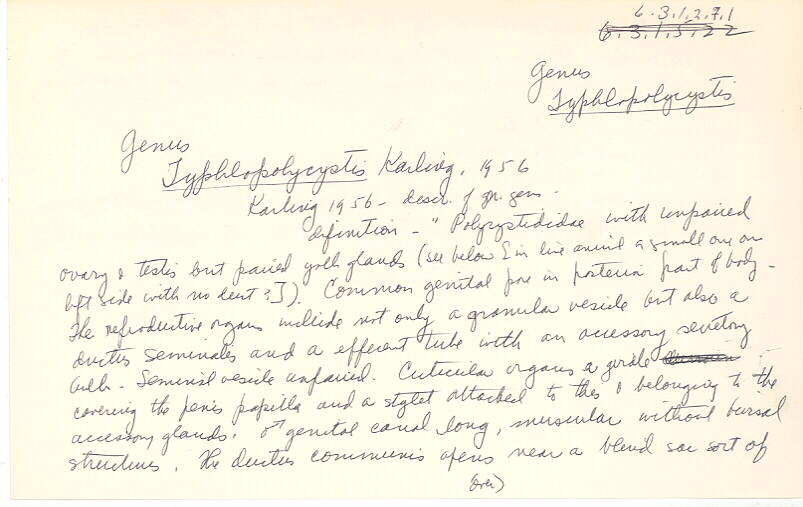 6.3.1.2.7.1
6.3.1.5.22
Genus
Typhlopolycystis
Genus
Typhlopolycystis Karling, 1956
Karling 1956 - descr. of gen.
definition - " Polycystididae with unpaired
ovary & testis but paired yolk glands (see below [in live animal a small one on
left side with no duct?]). Common genital pore in posterior part of body -
The reproductive organs include not only a granular vesicle but also a
ductus seminales and a efferent tube with an accessory secretory
bulb - Seminal vesicle unpaired. Cuticular organs a girdle
covering the penis papilla and a stylet attached to this & belonging to the
accessory glands. ♂ genital canal long, muscular without bursal
structures. The ductus communis opens near a blind sac sort of
(over)